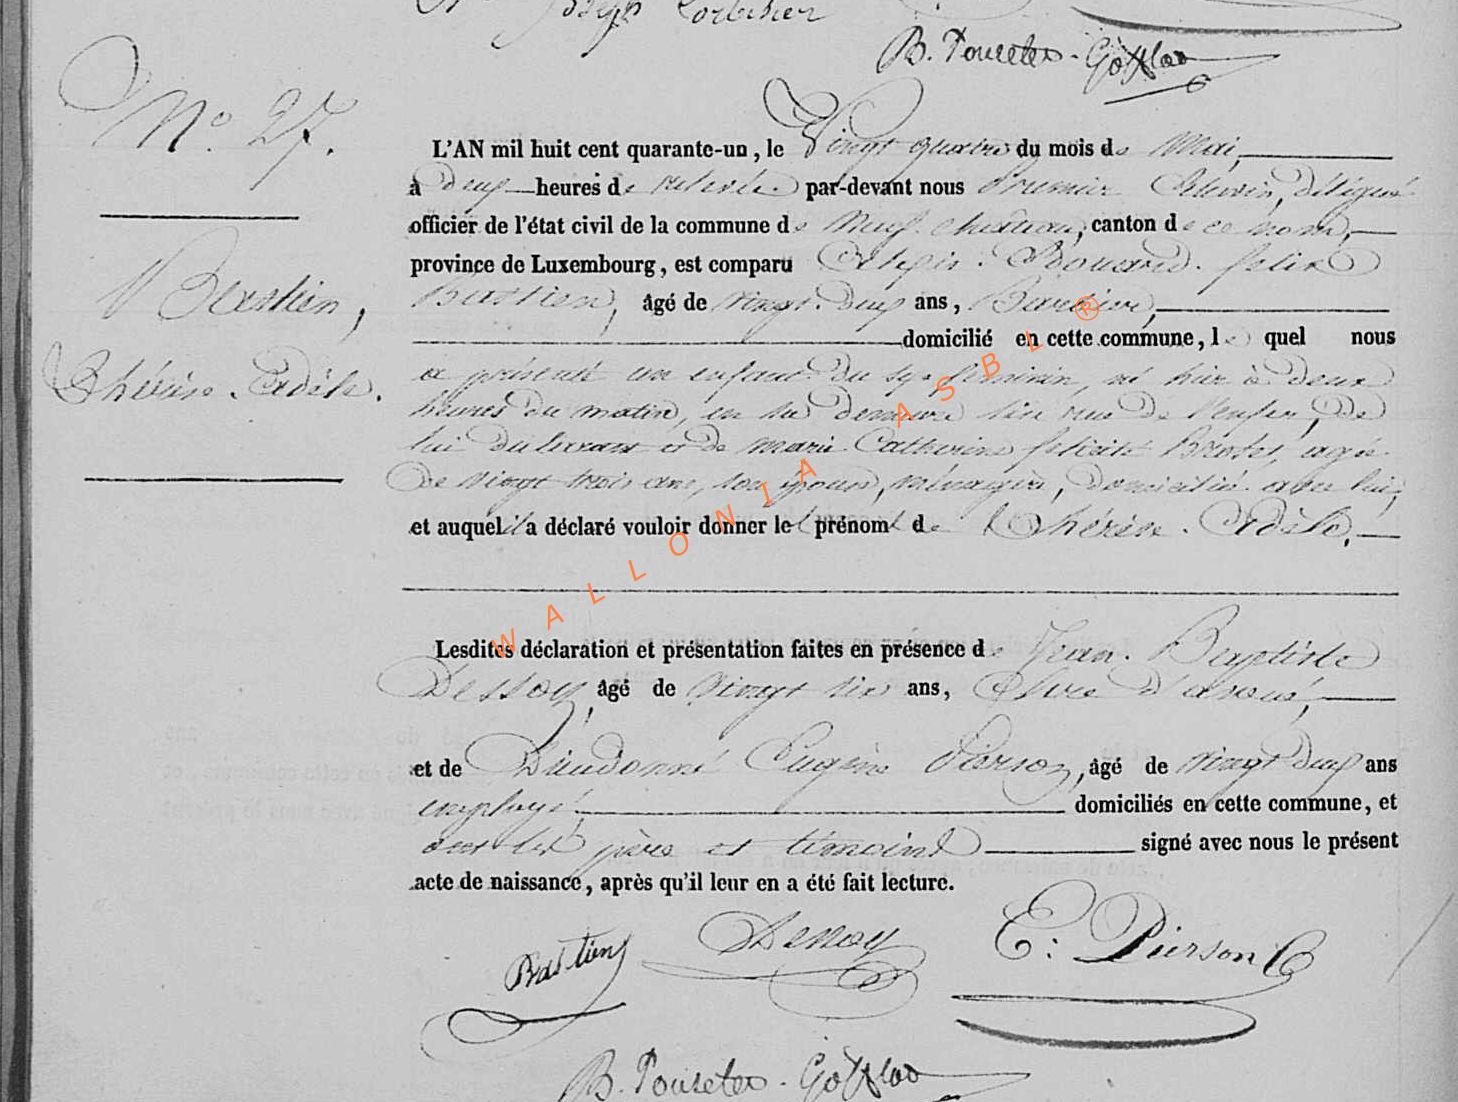 Joseph Corbisier
B. Poncelet-Gofflot
N° 27.
Bastien,
Thérèse Adèle.
L'AN mil huit cent quarante-un, le Vingt quatre du mois de Mai,
à deux heures de relevée par-devant nous Premier Echevin, délégué
officier de l'état civil de la commune de Neufchateau, canton de ce nom,
province de Luxembourg, est comparu Alexis Edouard felix
Bastien, âgé de vingt deux ans,
domicilié en cette commune, lequel nous
a présenté un enfant du sexe feminin, né hier à deux
heures du matin, en sa demeure sise rue de l'enfer, de
lui déclarant et de marie Catherine félicité, agée
de vingt trois ans, son epouse, ménagère, domiciliée avec lui,
et auquel il a déclaré vouloir donner le prénom de Thérèse Adèle,
Lesdites déclaration et présentation faites en présence de Jean Baptiste
Dessoy, âgé de vingt six ans, Clerc d'avoué,
et de Dieudonné Eugène Pierson, âgé de vingt deux ans
employé domiciliés en cette commune, et
ont les père et témoins signé avec nous le présent
acte de naissance, après qu'il leur en a été fait lecture.
Bastien Dessoy E: Pierson
B. Poncelet-Gofflot
WALLONIA ASBL ®